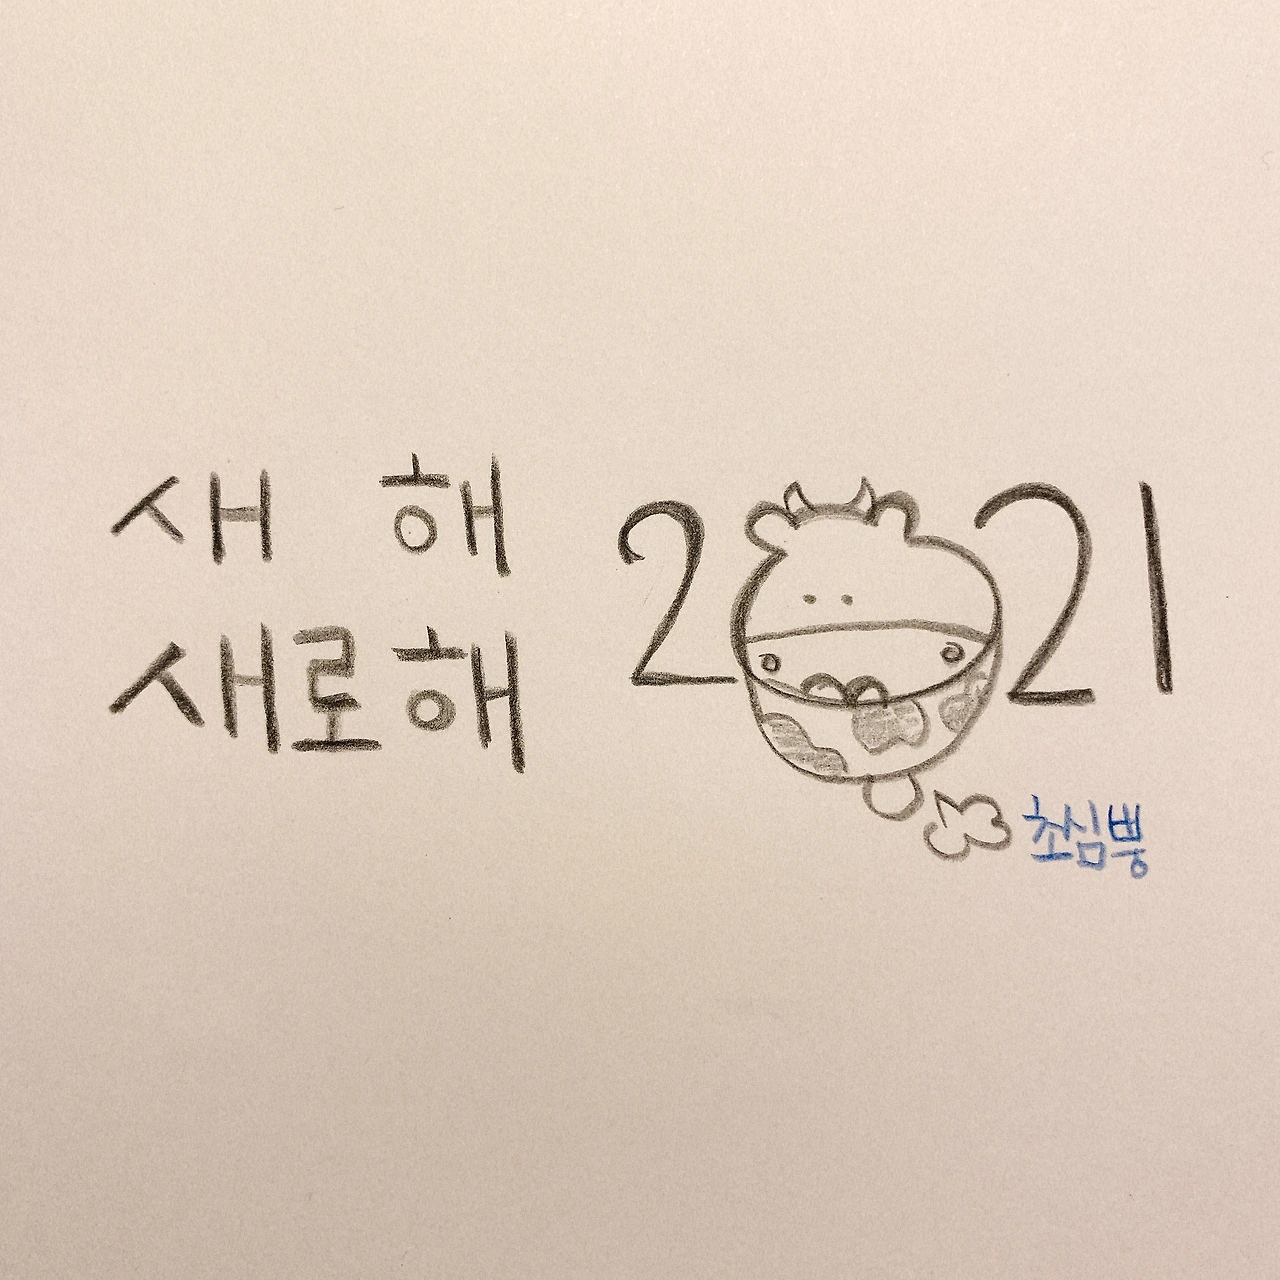 새 해
새로해
2021
초심뿡